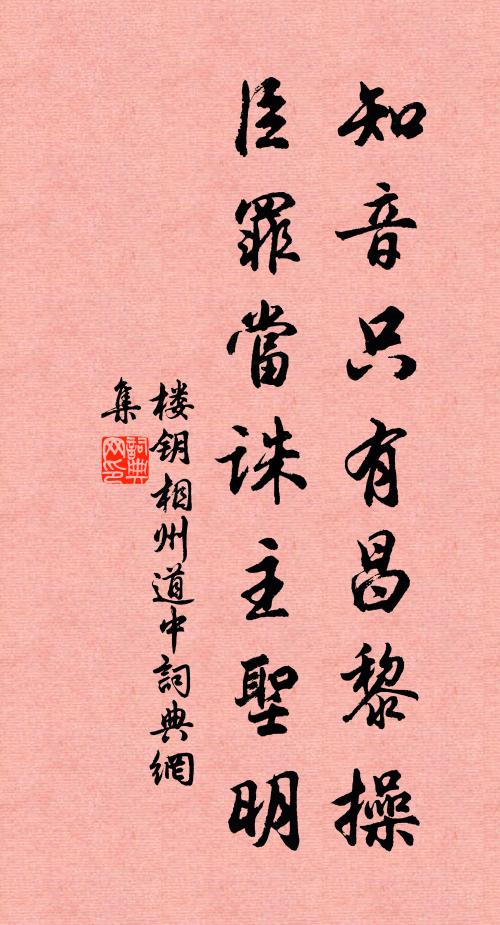 知音只有昌黎操
臣罪當誅主聖明
楼钥相州道中詞典網
集
詞典網印